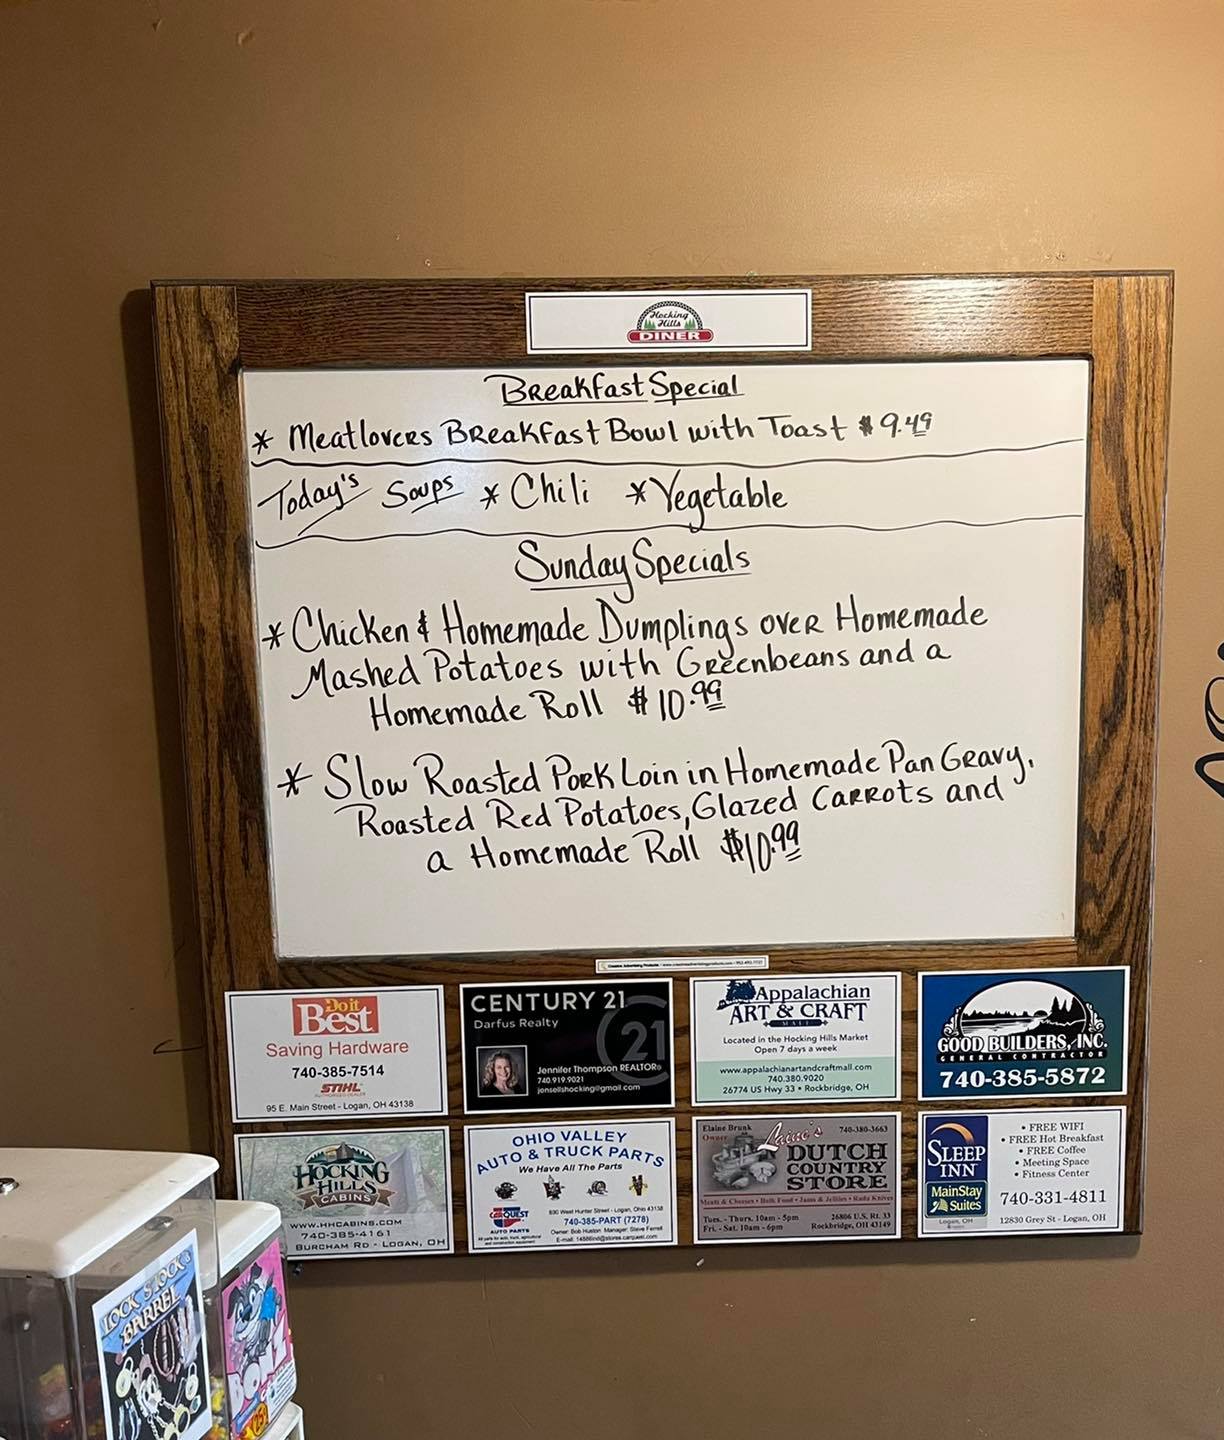 Hocking
Hills
DINER
Breakfast Special
* Meatlovers Breakfast Bowl with Toast $9.49
Today's Soups * Chili * Vegetable
Sunday Specials
* Chicken & Homemade Dumplings over Homemade
Mashed Potatoes with Greenbeans and a
Homemade Roll $10.99
* Slow Roasted Pork Loin in Homemade Pan Gravy,
Roasted Red Potatoes, Glazed Carrots and
a Homemade Roll $10.99
Do it
Best
Saving Hardware
740-385-7514
STIHL
95 E. Main Street - Logan, OH 43138
CENTURY 21
Darfus Realty
21
Jennifer Thompson REALTOR®
740.919.9021
jensellshocking@gmail.com
Appalachian
ART & CRAFT
MALL
Located in the Hocking Hills Market
Open 7 days a week
www.appalachianartandcraftmall.com
740.380.9020
26774 US Hwy 33 • Rockbridge, OH
GOOD BUILDERS, INC.
GENERAL CONTRACTOR
740-385-5872
HOCKING
HILLS
CABINS
WWW.HHCABINS.COM
740-385-4161
BURCHAM RD - LOGAN, OH
OHIO VALLEY
AUTO & TRUCK PARTS
We Have All The Parts
CARQUEST
AUTO PARTS
830 West Hunter Street - Logan, Ohio 43138
740-385-PART (7278)
Owner: Bob Huston Manager: Steve Ferrell
Elaine Brunk
Owner
740-380-3663
Laine's
DUTCH
COUNTRY
STORE
Meats & Cheeses • Bulk Food • Jams & Jellies • Rada Knives
Tues. - Thurs. 10am - 5pm
Fri. - Sat. 10am - 6pm
26806 U.S. Rt. 33
Rockbridge, OH 43149
SLEEP
INN
MainStay
Suites
Logan, OH
• FREE WIFI
• FREE Hot Breakfast
• FREE Coffee
• Meeting Space
• Fitness Center
740-331-4811
12830 Grey St - Logan, OH
LOCK STOCK &
BARREL
BONZ
25¢